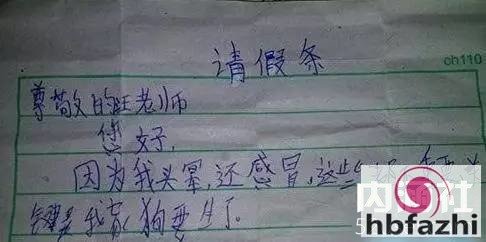 请假条
ch110
尊敬的旺老师
您好,
因为我头晕,还感冒,这些
键是我家狗要生了。
hbfazhi